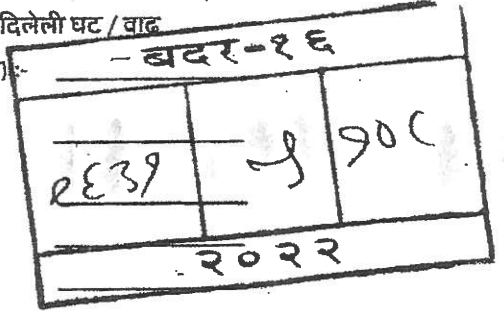 दिलेली घट / वाढ
):-
- बदर-१६
९६३१ ५ १०८
२०२२